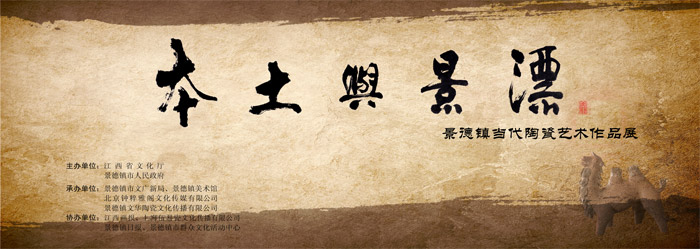 本土與景漂
景德镇当代陶瓷艺术作品展
主办单位：江西省文化厅
景德镇市人民政府
承办单位：景德镇市文广新局、景德镇美术馆
北京钟粹雅阁文化传媒有限公司
景德镇文华陶瓷文化传播有限公司
协办单位：江西画报、上海
文化传播有限公司
景德镇日报、景德镇市群众文化活动中心